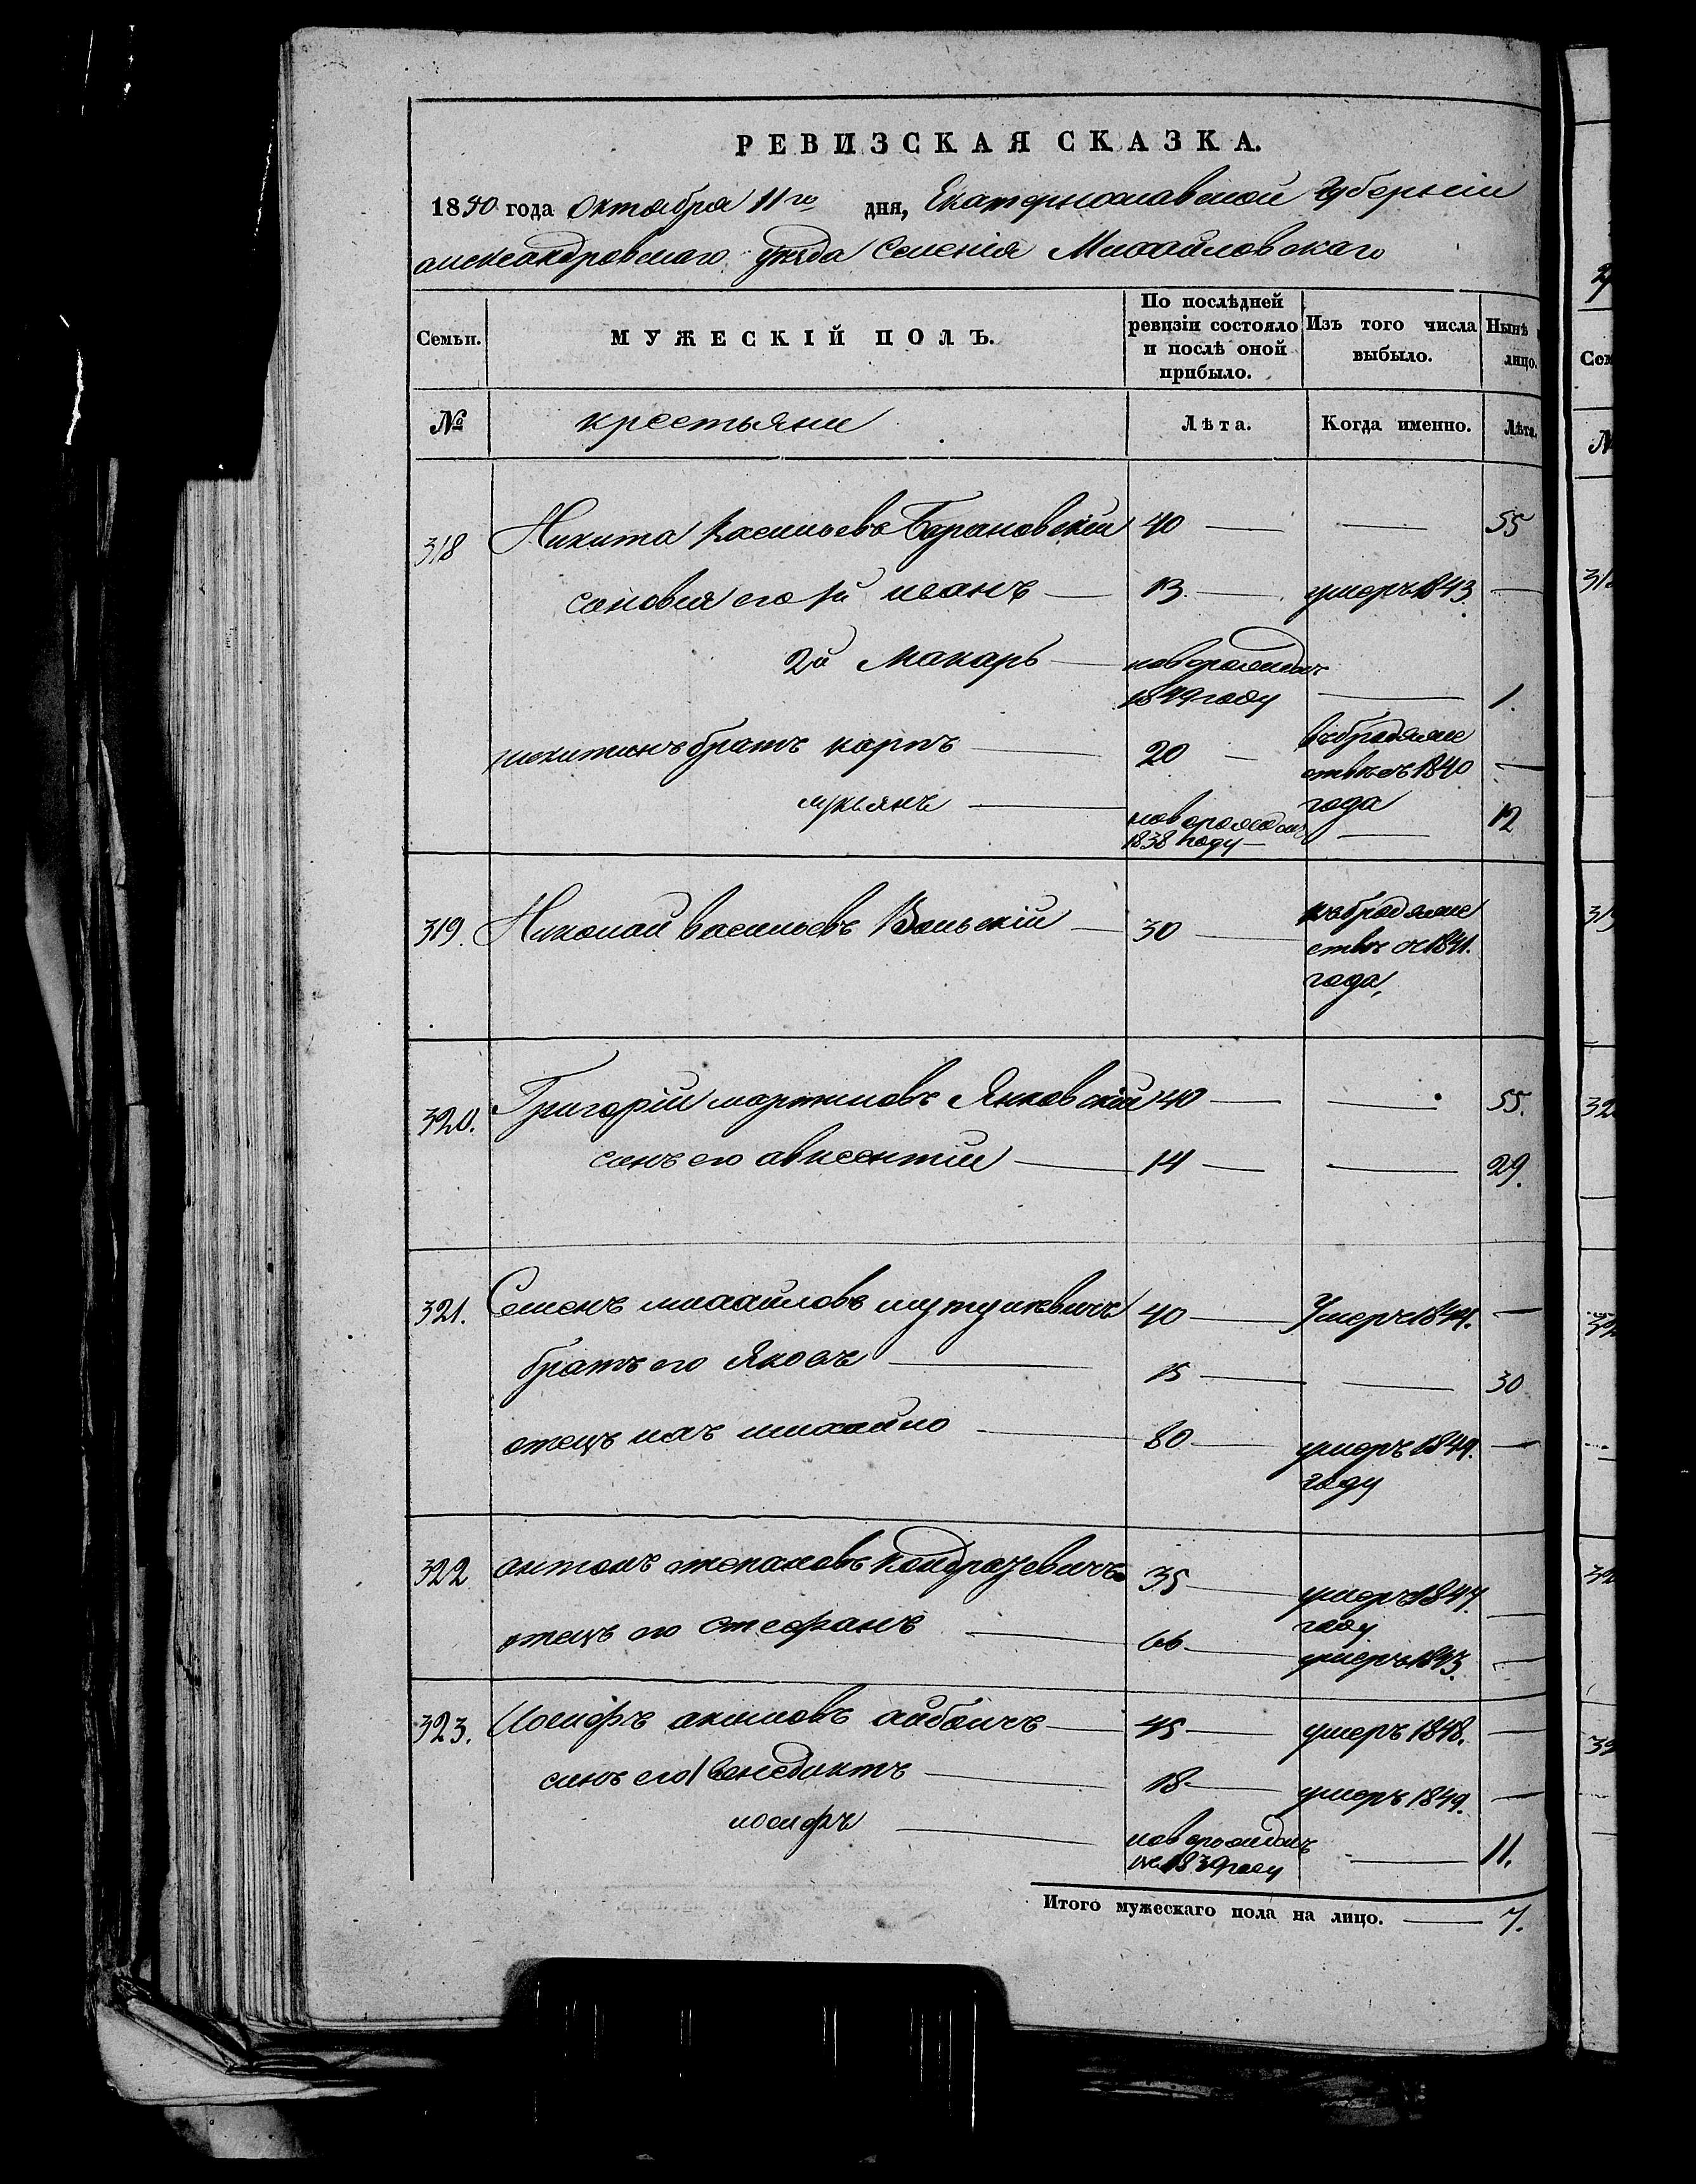 РЕВИЗСКАЯ СКАЗКА.
1850 года октября 11го дня, Екатеринославской Губерніи
александровскаго уѣзда Селенія Михайловскаго
Семьи. МУЖЕСКІЙ ПОЛЪ. По послѣдней ревизіи состояло и послѣ оной прибыло. Изъ того числа выбыло. Нынѣ лицо.
№ крестьяни Лѣта. Когда именно. Лѣта.
318 Никита васильевъ Барановскій 40 — — 55
сыновья его 1й иванъ — 13 — умеръ 1843. —
2й Макаръ — новорожденъ
1849 году — 1.
никитинъ братъ карпъ — 20 — въ бродяже
ствѣ съ 1840 —
года
лукьянъ — новорожденъ
1838 году — — 12
319. Николай васильевъ Вольскій — 30 — въ бродяже
ствѣ съ 1841.
года,
320. Григорій мартиновъ Янковскій 40 — — 55.
синъ его авксентій — 14 — — 29.
321. Семенъ михайловъ 40 — Умеръ 1849. —
братъ его Яковъ — 15 — — 30
отецъ ихъ михайло — 80 — умеръ 1849. —
году
322 антонъ степановъ кондрацевичъ 35 — умеръ 1847.
году —
отецъ его стефанъ — 66 — умеръ 1843. —
323. Иосифъ акимовъ — 45 — умеръ 1848. —
синъ его 1 венедиктъ — 18 — умеръ 1849. —
иосифъ — новорожденъ
1839 году — 11.
Итого мужескаго пола на лицо. — 7.